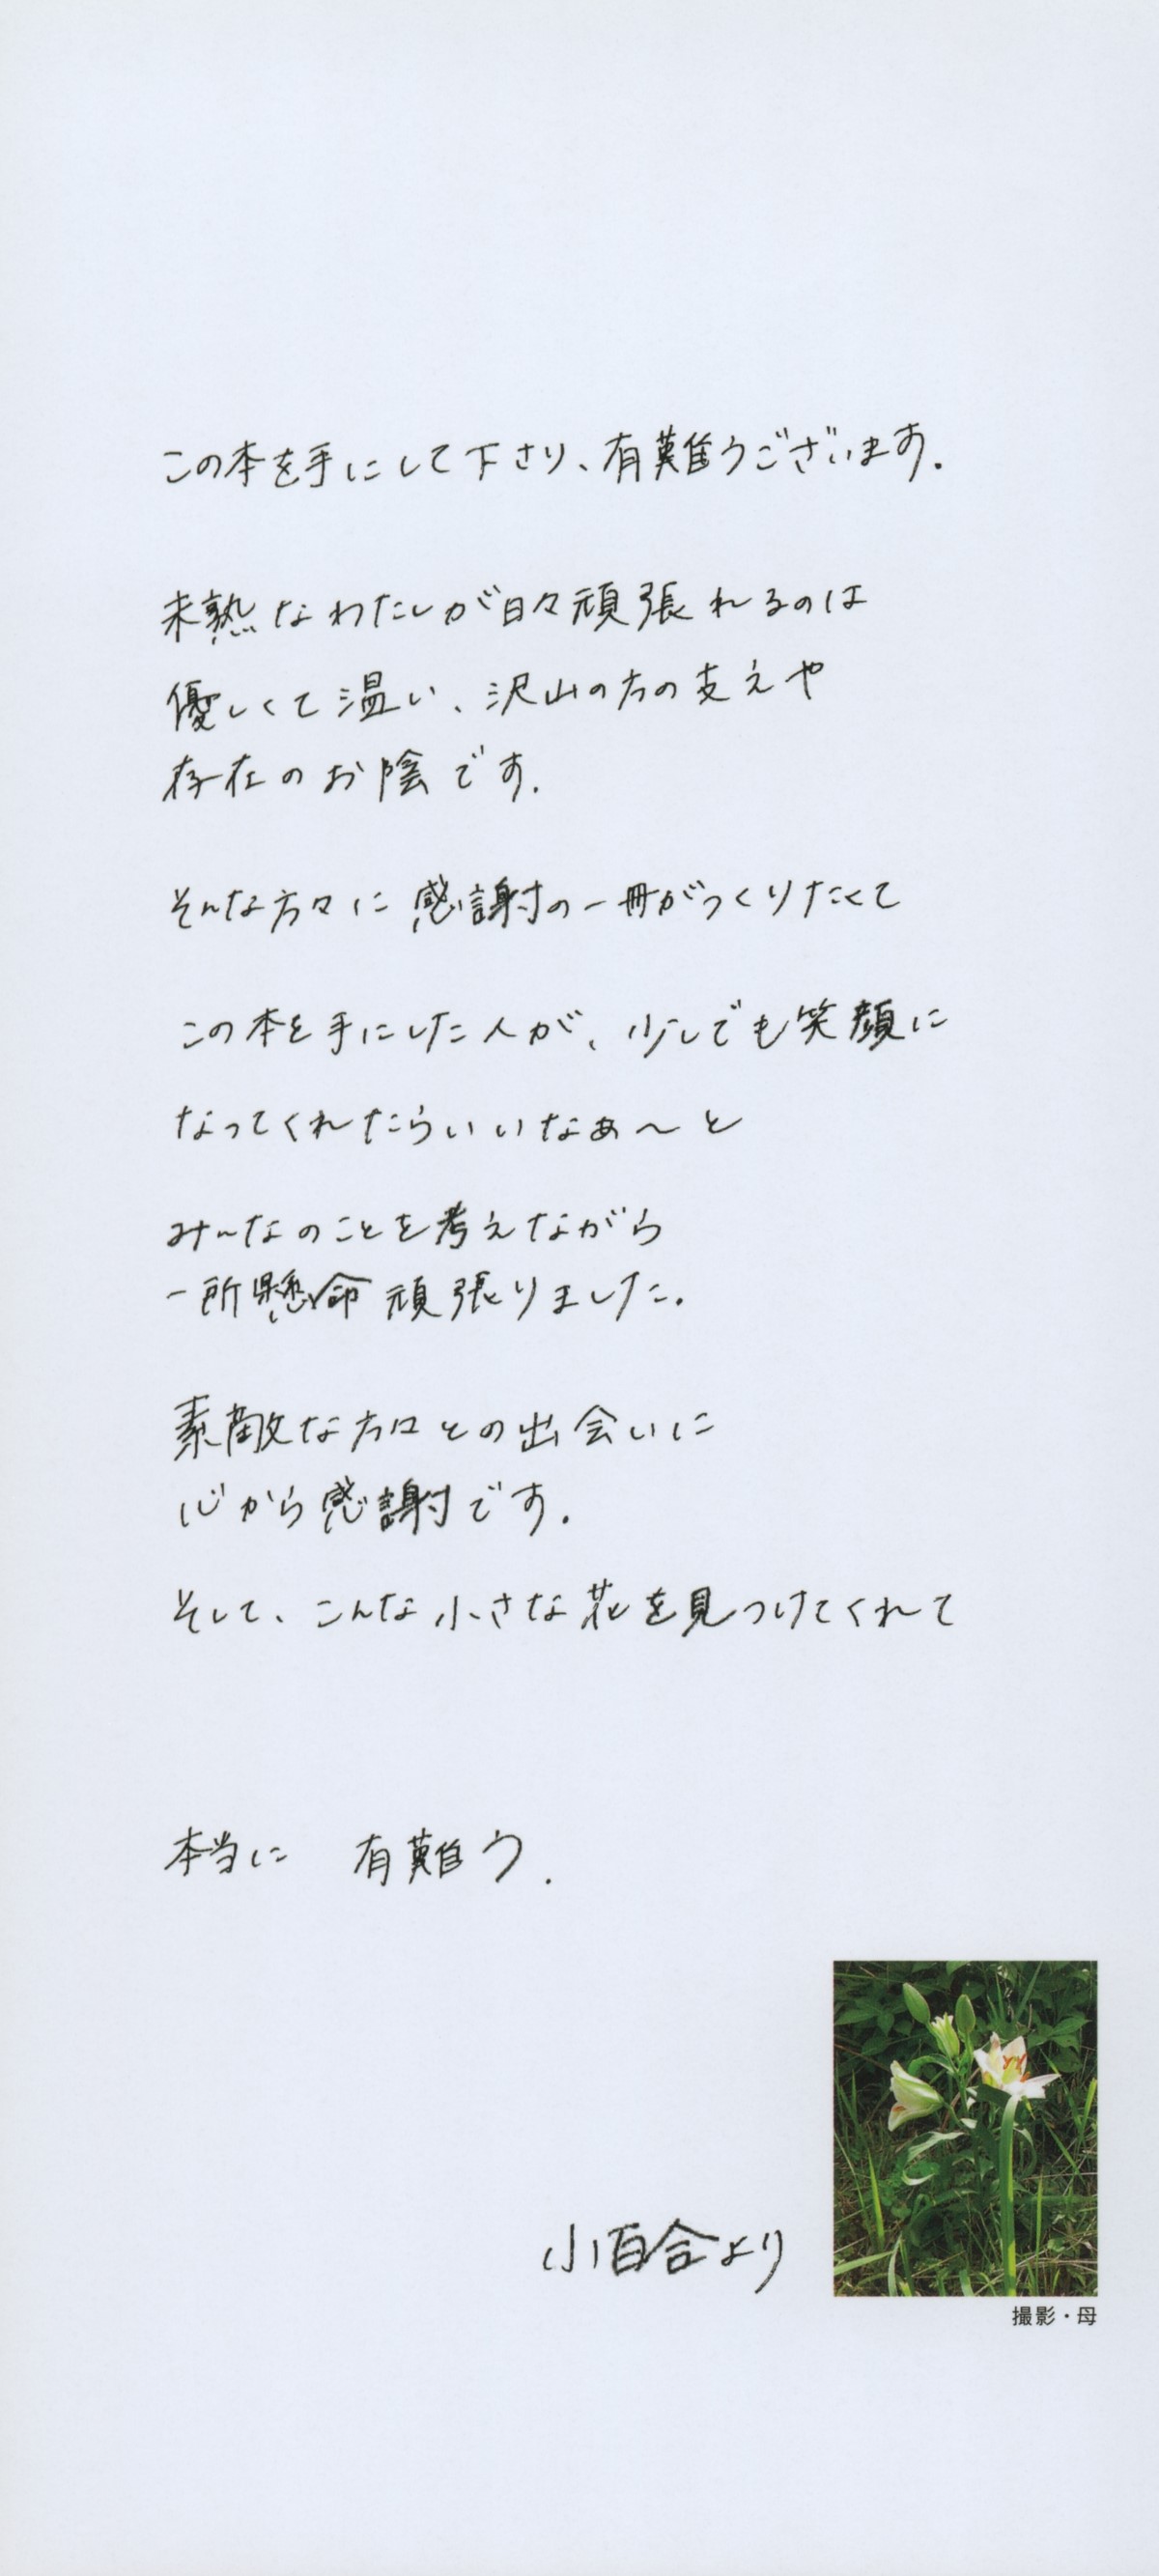 この本を手にして下さり、有難うございます.
未熟なわたしが日々頑張れるのは
優しくて温い、沢山の方の支えや
存在のお陰です.
そんな方々に感謝の一冊がつくりたくて
この本を手にした人が、少しでも笑顔に
なってくれたらいいなぁ〜と
みんなのことを考えながら
一所懸命頑張りました.
素敵な方々との出会いに
心から感謝です.
そして、こんな小さな花を見つけてくれて
本当に 有難う.
小百合より
撮影・母